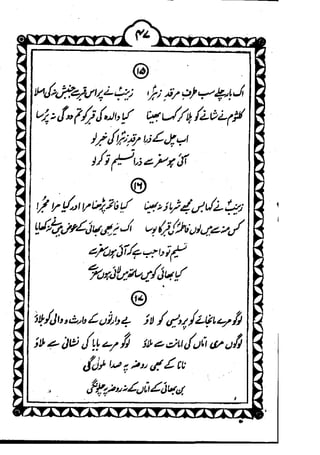 ۴۷
۱۵
اک بار چلے سب طرفِ مرقدِ زہراؑ زینبؑ نے پر اس قبر سے جنبش نہ کی اصلا
کلثومؑ نے شانے کو ہلا کر کہا بہینا کیا والدہ کی قبر کو تم دو گی نہ پرسا
اب چل کے ذرا مرقدِ زہراؑ کی خبر لو
آئی ہو سفر سے ذرا تسلیم تو کر لو
۱۶
زینبؑ نے کہا بس مجھے شرماؤ نہ بہینا کیا فاتحہ پڑھنا مرا اور کیا مرا مجرا
کس منہ سے میں لوں فاطمہؑ کی قبر کا بوسا اک نیر بھی بھائی کے عوض جیتے نہ کھایا
تسلیم تو واجب ہے کہ آئی ہوں سفر سے
کیا بھائی کو میں ساتھ میں لائی ہوں سفر سے
۱۷
لوگو مرے مانجائے کو پردیسی کو لاؤ بے وارثوں کے وارث و والی کو بلاؤ
لوگوں مری اماں کی امانت سے ملاؤ لوگو مرے بابا کی نشانی سے ملاؤ
نانا کے بھی روضہ پہ صدا ملول گی
بن بھائی کے اماں کے نہ روضہ پہ چلونگی